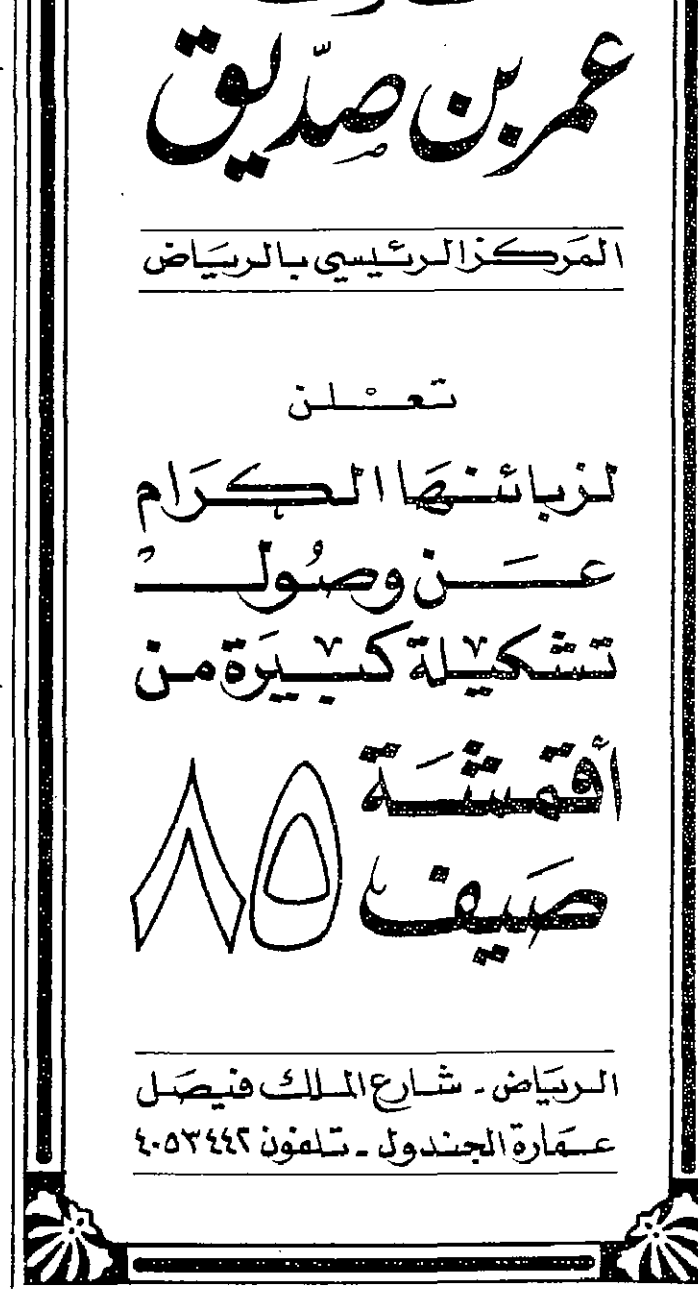 عمر بن صدّيق
المركز الرئيسي بالرياض
تعلن
لزبائنها الكرام
عن وصول
تشكيلة كبيرة من
أقمشة
صيف ٨٥
الرياض - شارع الملك فيصل
عمارة الجندول - تلفون ٤٠٥٣٤٤٢